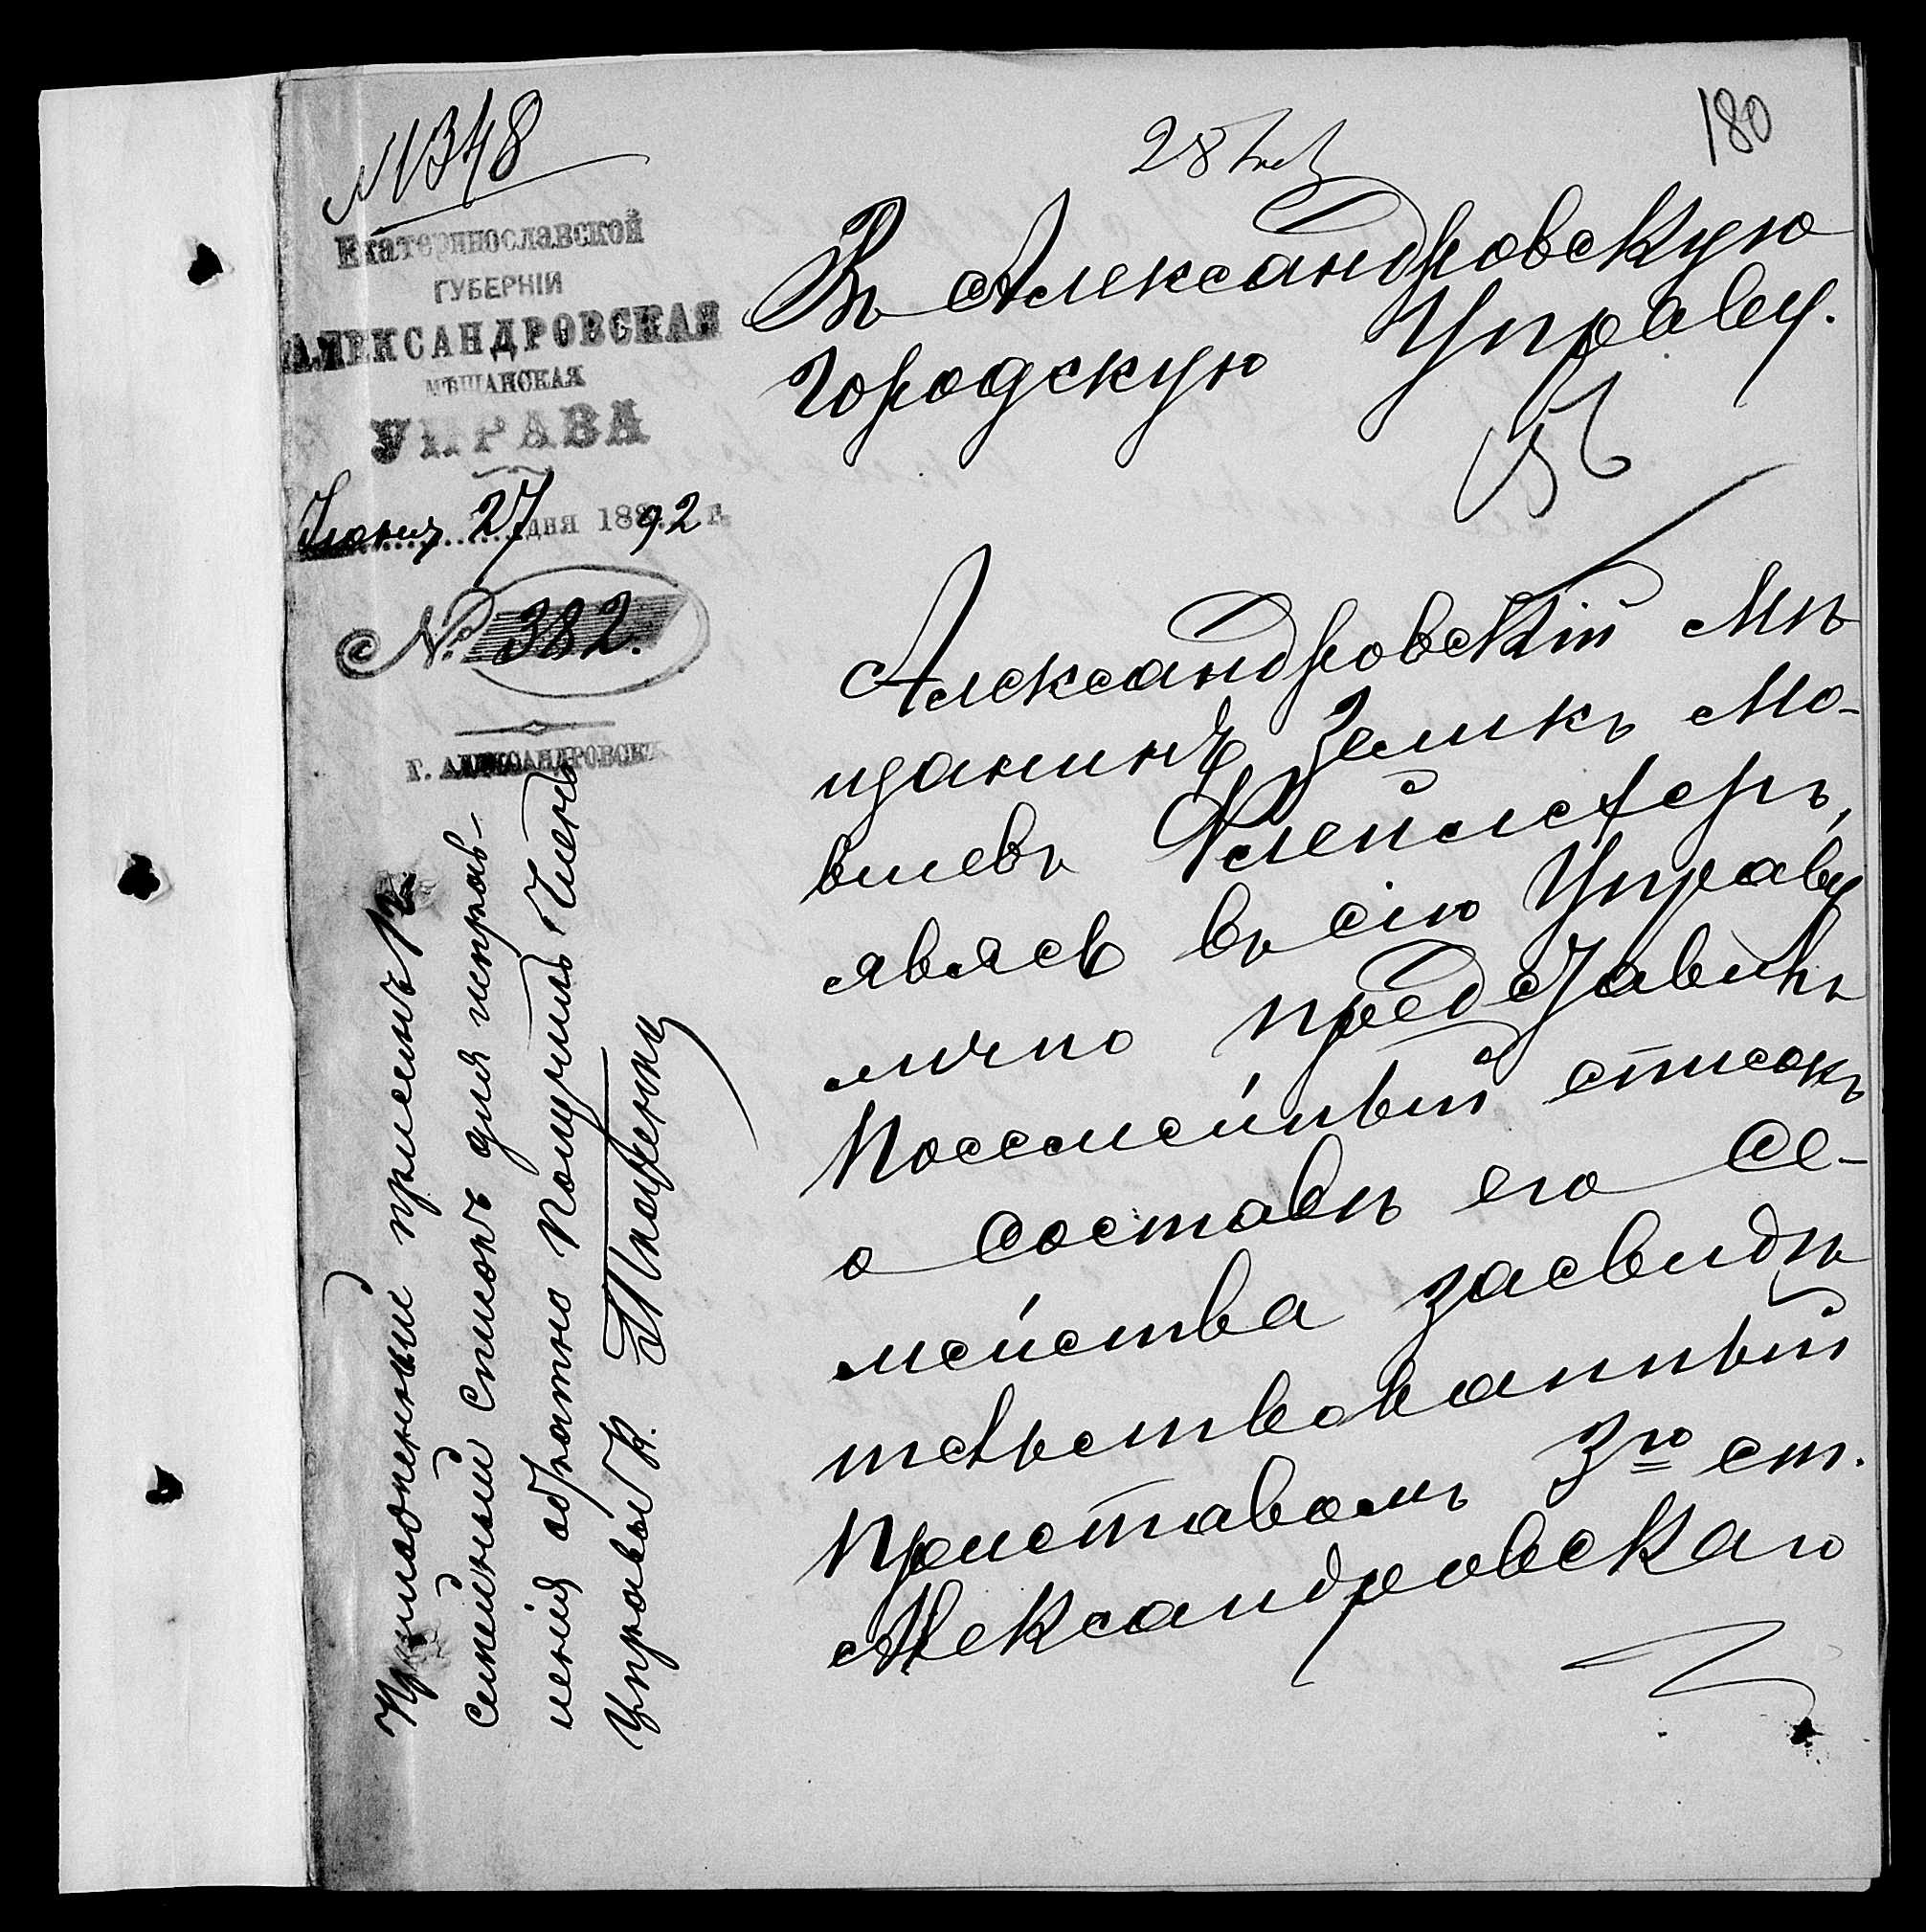 № 1348
180
28
Екатеринославской
ГУБЕРНІИ
АЛЕКСАНДРОВСКАЯ
МѢЩАНСКАЯ
УПРАВА
Іюня 27 дня 1892 г.
№ 382.
Г. АЛЕКСАНДРОВСКЪ
Въ Александровскую
городскую Управу.
Александровскій мѣ
щанинъ Зеликъ Мо-
вшевъ Клейнеръ,
явясь въ сію Управу
лично представилъ
посемейный списокъ
о составѣ его се-
мейства засвидѣ
тельствованный
Приставомъ 3го ст.
Александровскаго
Приложенный при семъ
семейный списокъ для исправ-
ленія обратно получилъ Членъ
Управы К.